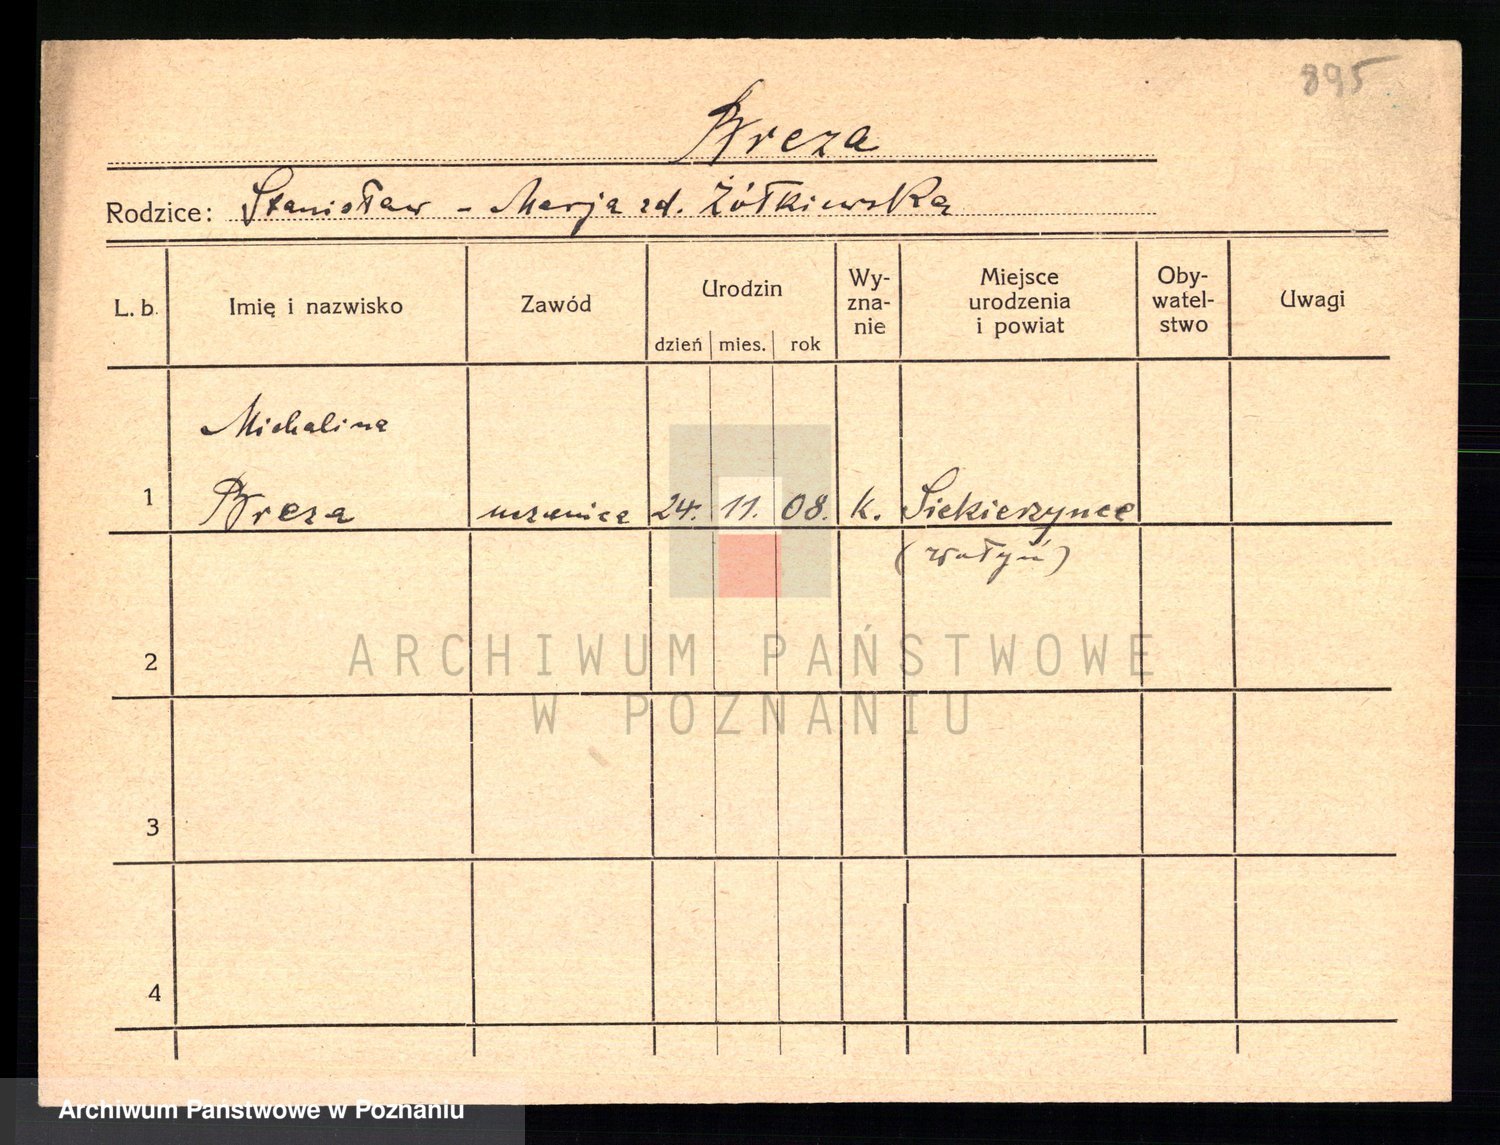 895
Breza
Rodzice: Stanisław - Marja zd. Żółkiewska
L. b. Imię i nazwisko Zawód Urodzin dzień mies. rok Wy-zna-nie Miejsce urodzenia i powiat Oby-watel-stwo Uwagi
Michalina
1 Breza uczenica 24. 11. 08. k. Siekierzynce
(Wołyń)
2
3
4
ARCHIWUM PAŃSTWOWE
W POZNANIU
Archiwum Państwowe w Poznaniu